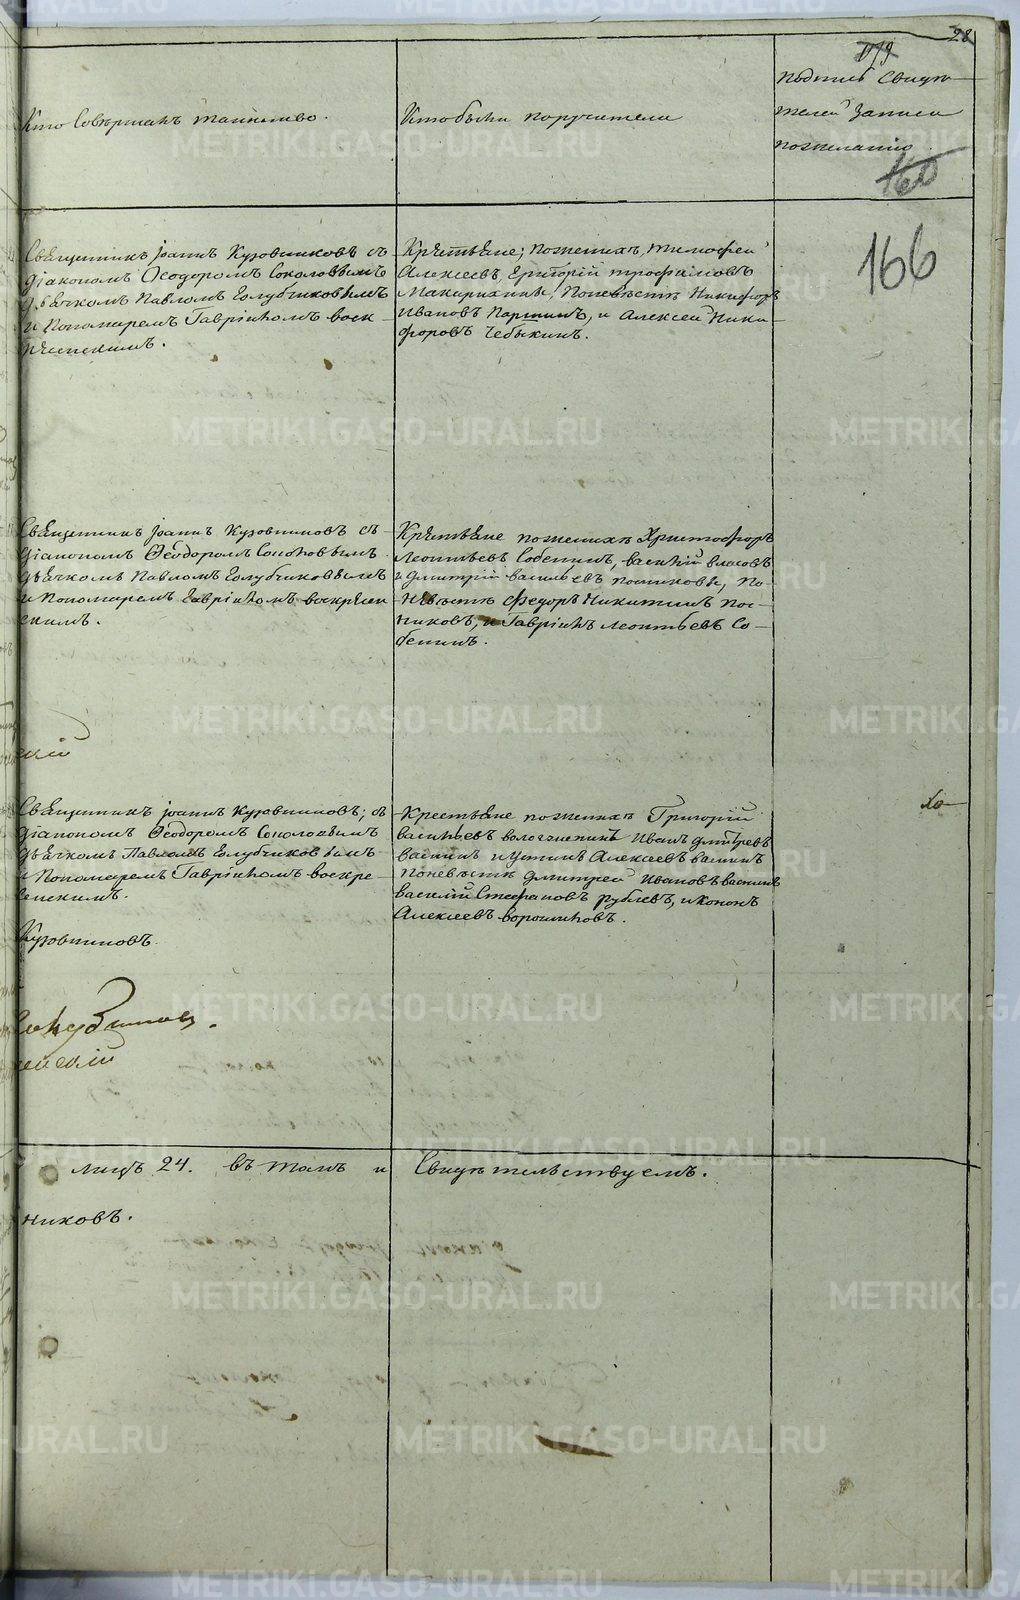 28
179
Кто Совершалъ таинство.
Кто были поручители
подпись Свидѣ-
телей Записи
пожеланію
160
166
Священникъ Іоаннъ Кузовниковъ съ
діакономъ Ѳеодоромъ Соколовымъ
дьячкомъ Павломъ Голубчиковымъ
и Пономаремъ Гавріиломъ воск-
ресенскимъ.
Крестьяне; пожениху, тимофей
Алексеевъ, Григорій трофимовъ
Поневѣстѣ Никифоръ
Ивановъ Паршинъ, и Алексей Ники-
форовъ Чебыкинъ.
Священникъ Іоаннъ Кузовниковъ съ
діакономъ Ѳеодоромъ Соколовымъ
дьячкомъ Павломъ Голубчиковымъ
и Пономаремъ Гавріиломъ воскресен
скимъ.
Крестьяне пожениху Христофоръ
Леонтьевъ Собенинъ, василій власовъ
и дмитрій васильевъ посниковы, по-
невѣстѣ Федоръ Никитинъ пос-
никовъ, и Гавріилъ леонтьевъ Со-
бенинъ.
скій
Священникъ Іоаннъ Кузовниковъ; съ
діакономъ Ѳеодоромъ Соколовымъ
дьячкомъ Павломъ Голубчиковымъ
и Пономаремъ Гавріиломъ воскре-
сенскимъ.
Крестьяне пожениху Григорій
васильевъ Иванъ дмитревъ
васнинъ и Устинъ Алексеевъ васнинъ
поневѣстѣ дмитрей Ивановъ васнинъ
василій Стефановъ рублевъ, и Кононъ
Алексеевъ ворошиловъ.
Кузовниковъ.
енскій
лицъ 24. въ томъ и Свидѣтельствуемъ.
никовъ.